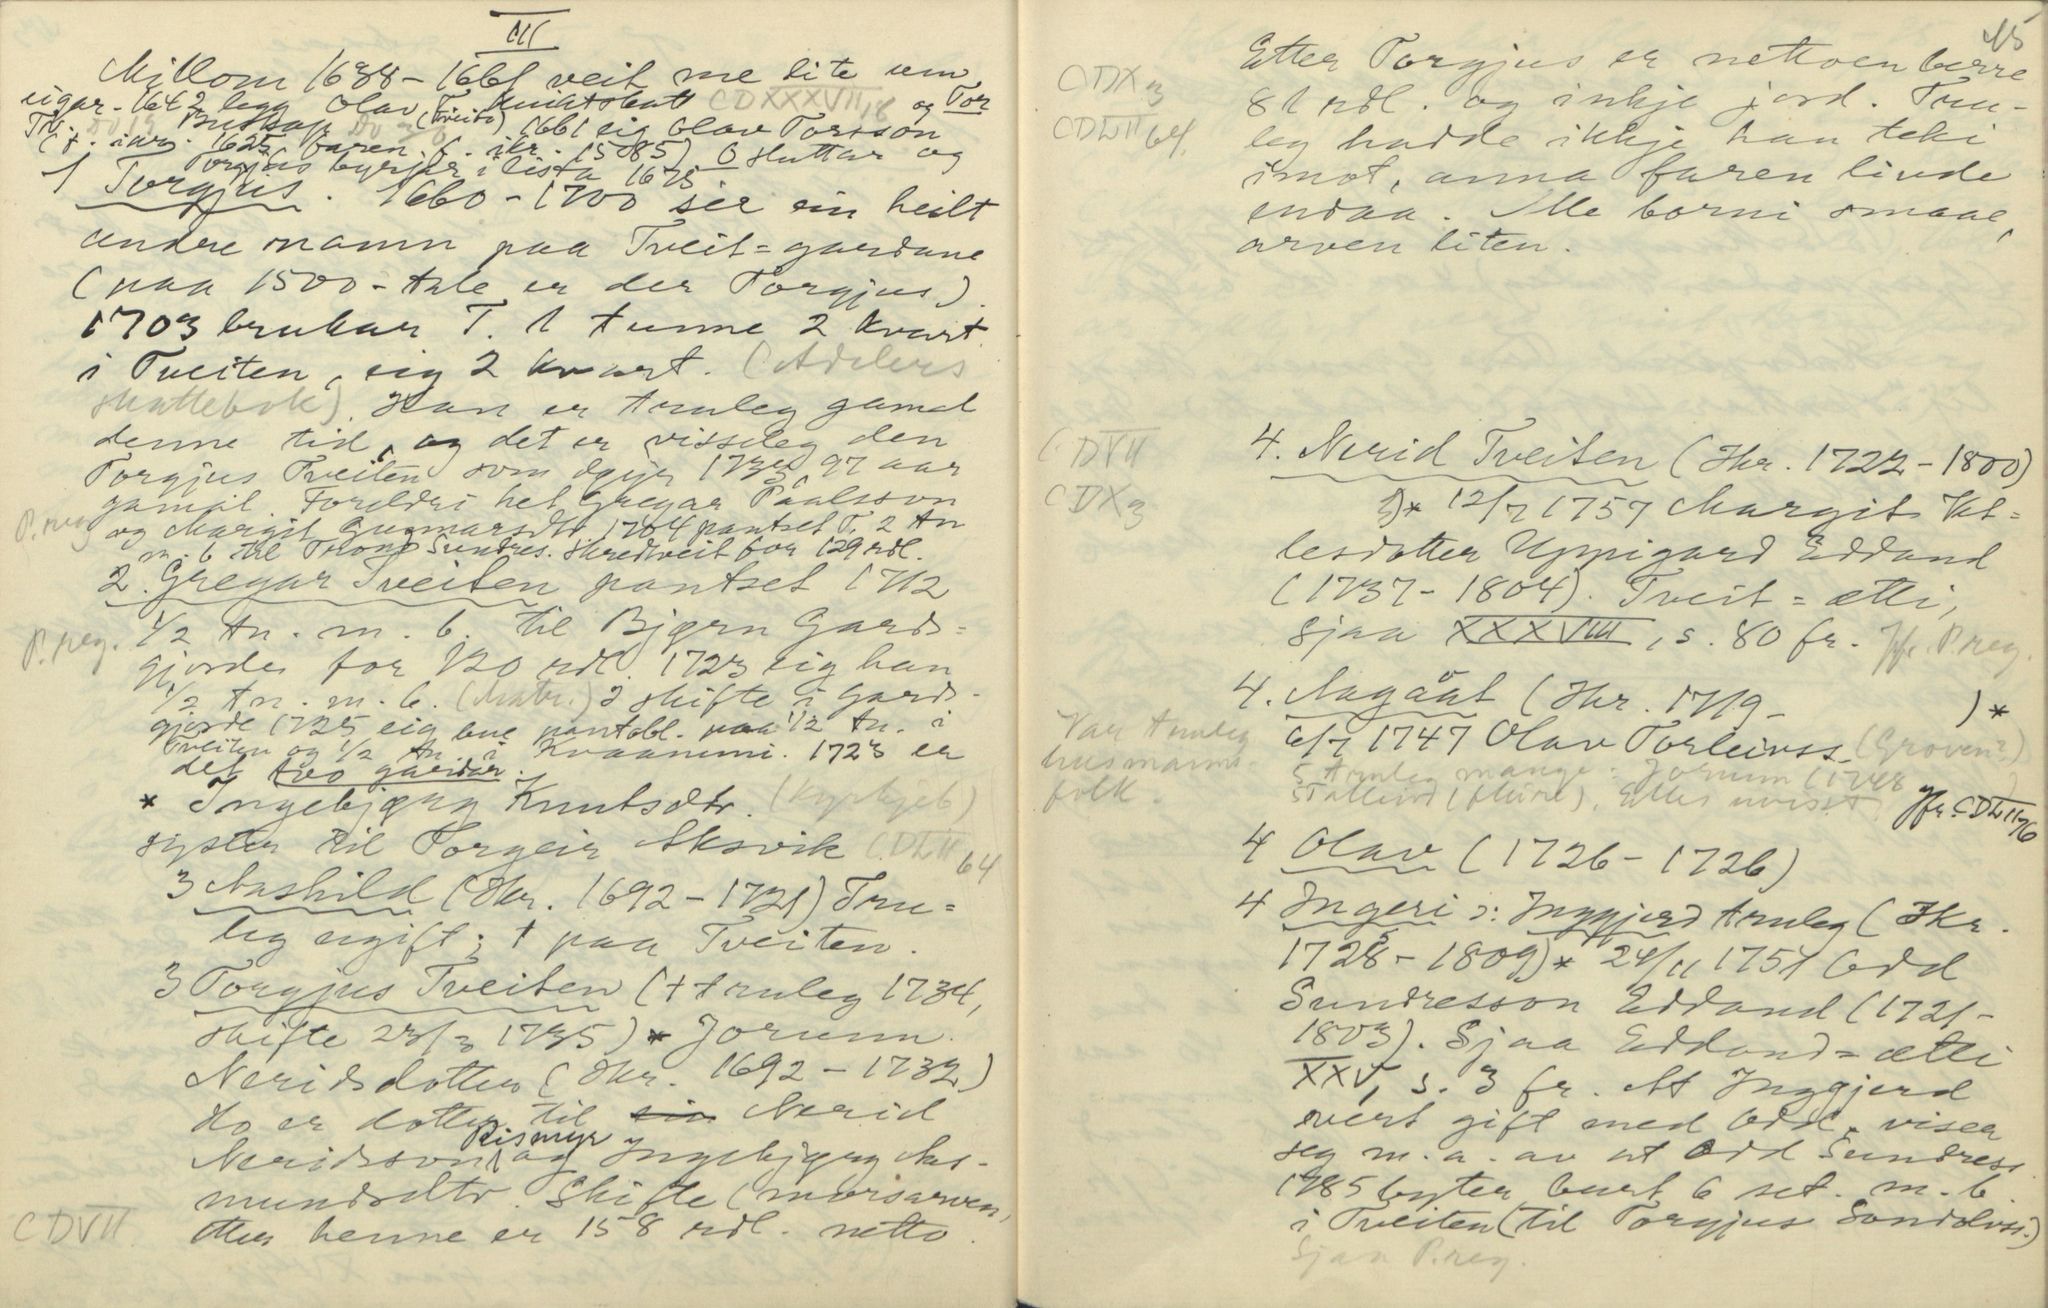 III
Millom 1638-1661 veit me lite um
eigar. 1642 legg Olav T. kvikskatt CDXXXVII og Tor
Tv. Buskap (Tveito) 1661 eig Olav Torsson
(f. ikr. 1625, faren f. ikr. 1585) O sluttar og
Torgjus byrjar i lista 1675
1 Torgjus. 1660-1700 ser ein heilt
andre namn paa Tveit=gardane
(paa 1500-tale er der Torgjus).
1703 brukar T. 1 tunne 2 kvart.
i Tveiten, eig 2 kvart. (Adelers
skattebok). Han er truleg gamal
denne tid, og det er visseleg den
Torgjus Tveiten som døyr 1733, 97 aar
gamal. Foreldri het Gregar Paalsson
P.reg og Margit Gunnarsdtr. 1704 pantset T. 2 tn
m. b. til Trond Sundres. Skredtveit for 129 rdl.
2. Gregar Tveiten pantset 1712
P.reg. 1/2 tn. m. b. til Bjørn Gards=
gjorde for 120 rdl. 1723 eig han
1/2 tn. m. b. (Matr.) I skifte i Gards-
gjorde 1725 eig bue pantobl. paa 1/2 tn. i
Tveiten og 1/2 tn. i Kvaanumi. 1723 er
det two gardar.
* Ingebjørg Knutsdtr. (Kyrkjeb)
syster til Torgeir Aksvik CDLII 64
3 Aashild (Ikr. 1692-1721) Tru=
leg ugift; † paa Tveiten.
3 Torgjus Tveiten (†truleg 1734,
skifte 23/3 1735) * Jorunn
Neridsdotter (Ikr. 1692-1732)
Ho er dotter til ein Nerid
Rismyr
Neridsson og Ingebjørg Aas-
mundsdtr. Skifte (morsarven)
CDVII etter henne er 158 rdl. netto.
45
CDX3 Etter Torgjus er nettoen berre
81 rdl. og inkje jord. Tru-
CDLII 64. leg hadde ikkje han teki
imot, anna faren livde
endaa. Alle borni smaae,
arven liten.
CDVII 4. Nerid Tveiten (Ikr. 1722-1800)
CDX3 * 12/7 1757 Margit Vet=
lesdotter Uppigard Eddand
(1737-1804). Tveit=ætti,
sjaa XXXVIII, s. 80 fr. Jfr. P.reg.
4. Aagaat (Ikr. 1719- )*
Var truleg 6/7 1747 Olav Torleivss. (Groven?)
husmanns- 5 truleg mange: Jorunn (1748 )
folk. 5 Tolleiv (fleire). Elles uvisst Jfr. CDLII 76
4 Olav (1726-1726)
4 Ingeri ɔ: Inggjerd truleg (Ikr.
1728-1809)* 24/11 1751 Odd
Sundresson Eddand (1721-
1803). Sjaa Eddand=ætti
XXV, s. 3 fr. At Inggjerd
vert gift med Odd, viser
seg m. a. av at Odd Sundress.
1785 byter burt 6 set. m. b.
i Tveiten (til Torgjus Sondolvs.)
Sjaa P.reg.